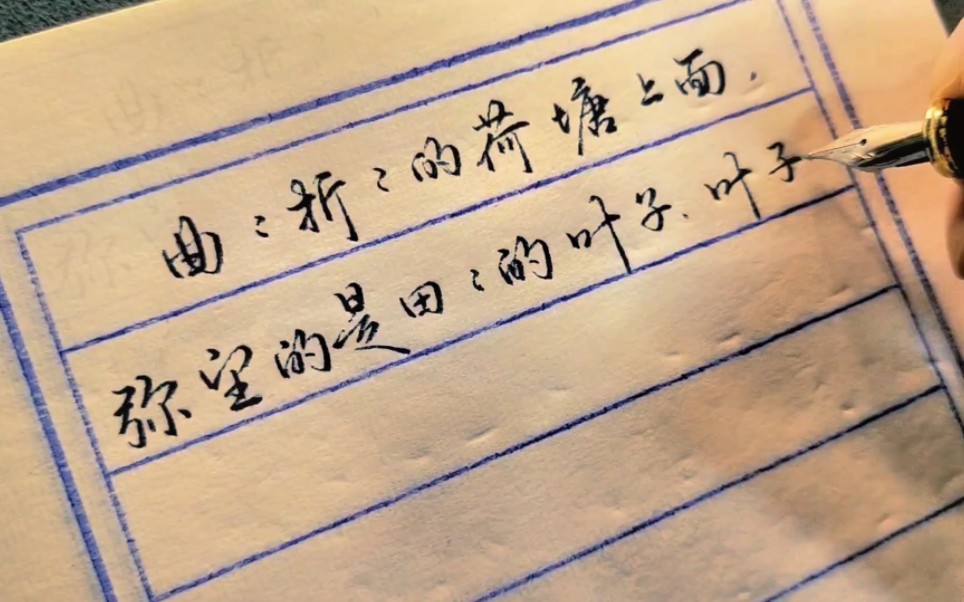 曲〻折〻的荷塘上面，
弥望的是田〻的叶子、叶子